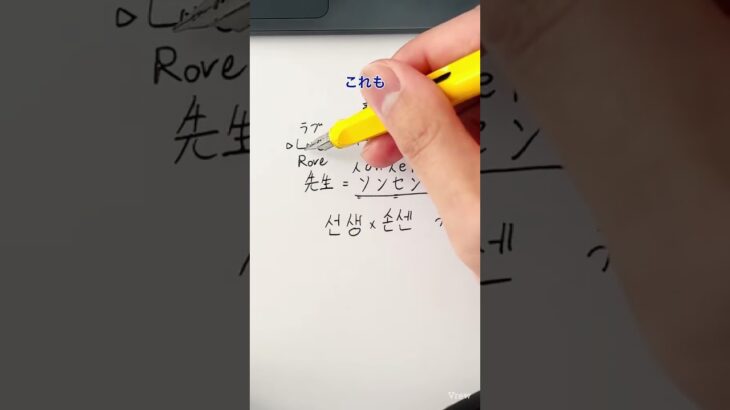 これも
ラブ
Rove
先生 = ソンセン
선생 × 손센
Vrew